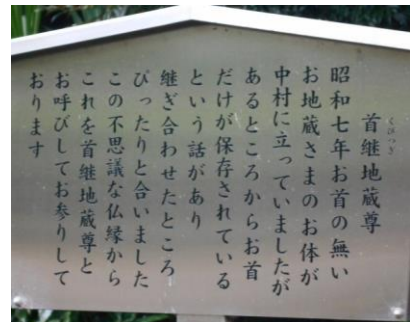 くびつぎ
首継地蔵尊
昭和七年お首の無い
お地蔵さまのお体が
中村に立っていましたが
あるところからお首
だけが保存されている
という話があり
継ぎ合わせたところ
ぴったりと合いました
この不思議な仏縁から
これを首継地蔵尊と
お呼びしてお参りして
おります